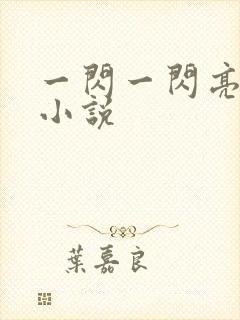 一閃一閃亮
小說
葉嘉良